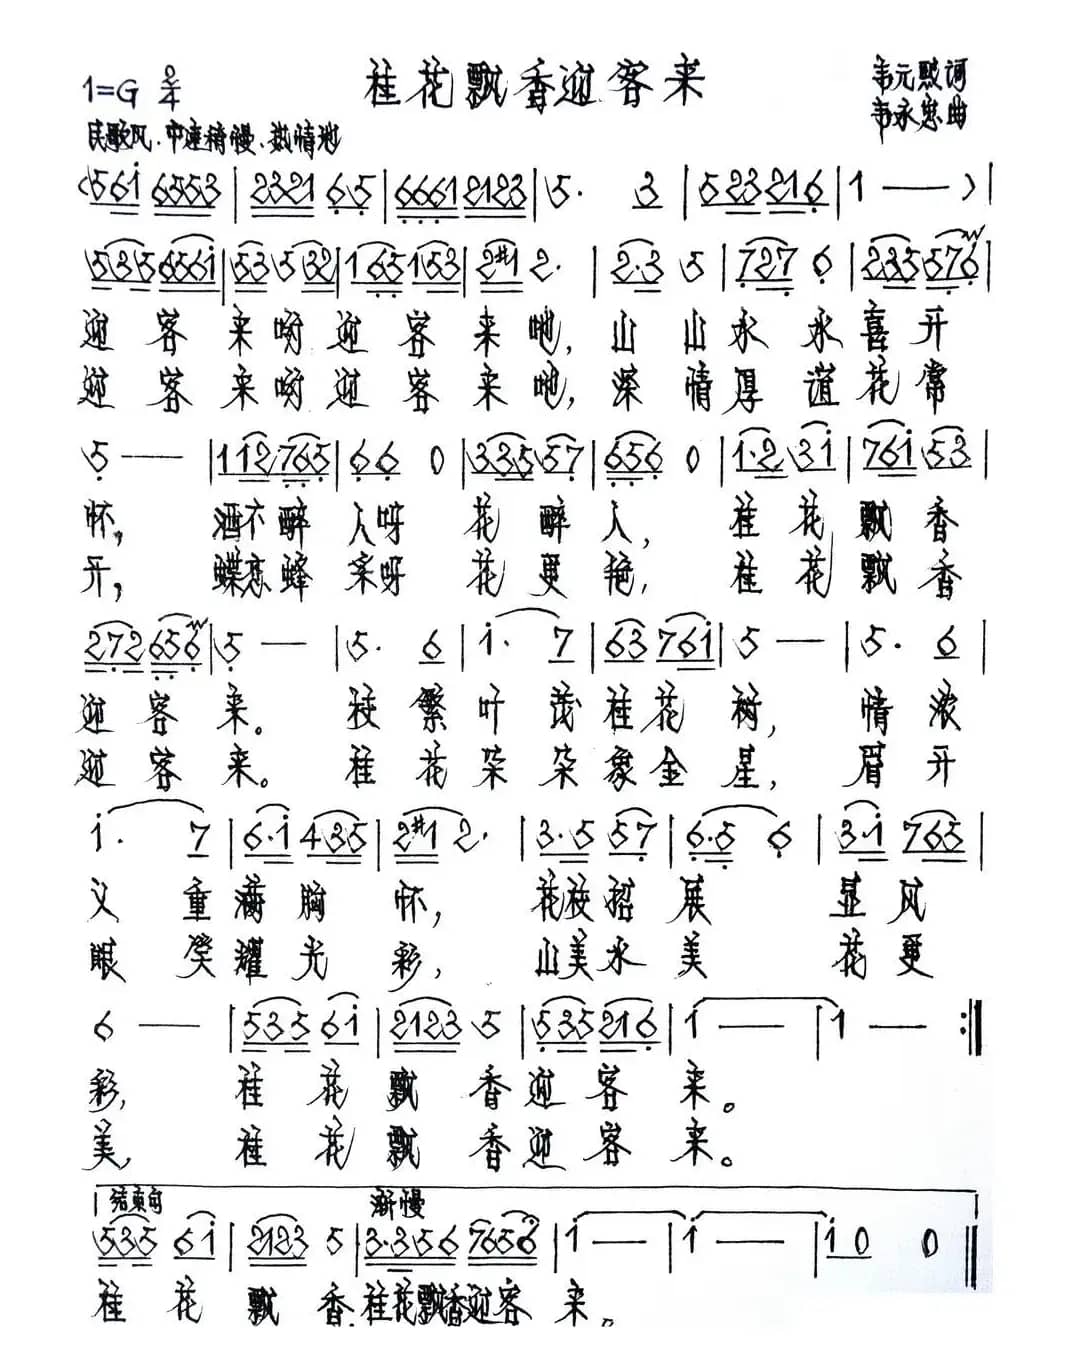 桂花飘香迎客来
1=G 2/4
韦元默词
韦永忠曲
民歌风、中速稍慢、热情地
(561 6553 | 2321 65 | 6661 2123 | 5. 3 | 523216 | 1 — ) |
535 6561 | 53532 | 165153 | 2#1 2. | 2.3 5 | 727 6 | 235576 |
迎客来呀迎客来吔,山山水水喜开
迎客来呀迎客来吔,深情厚谊花常
5 — | 112765 | 66 0 | 33557 | 656 0 | 1.2 31 | 761 53 |
怀,酒不醉人呀花醉人,桂花飘香
开,蝶恋蜂采呀花更艳,桂花飘香
272 656 | 5 — | 5. 6 | 1. 7 | 63 761 | 5 — | 5. 6 |
迎客来。枝繁叶茂桂花树,情浓
迎客来。桂花朵朵象金星,眉开
1. 7 | 6.1 435 | 2#1 2. | 3.5 57 | 6.5 6 | 3.1 765 |
义重满胸怀,花枝招展显风
眼笑耀光彩,山美水美花更
6 — | 535 61 | 2123 5 | 535216 | 1 — | 1 — :||
彩,桂花飘香迎客来。
美,桂花飘香迎客来。
结束句 渐慢
535 61 | 2123 5 | 3.356 7656 | 1 — | 1 — | 10 0 ||
桂花飘香桂花飘香迎客来。